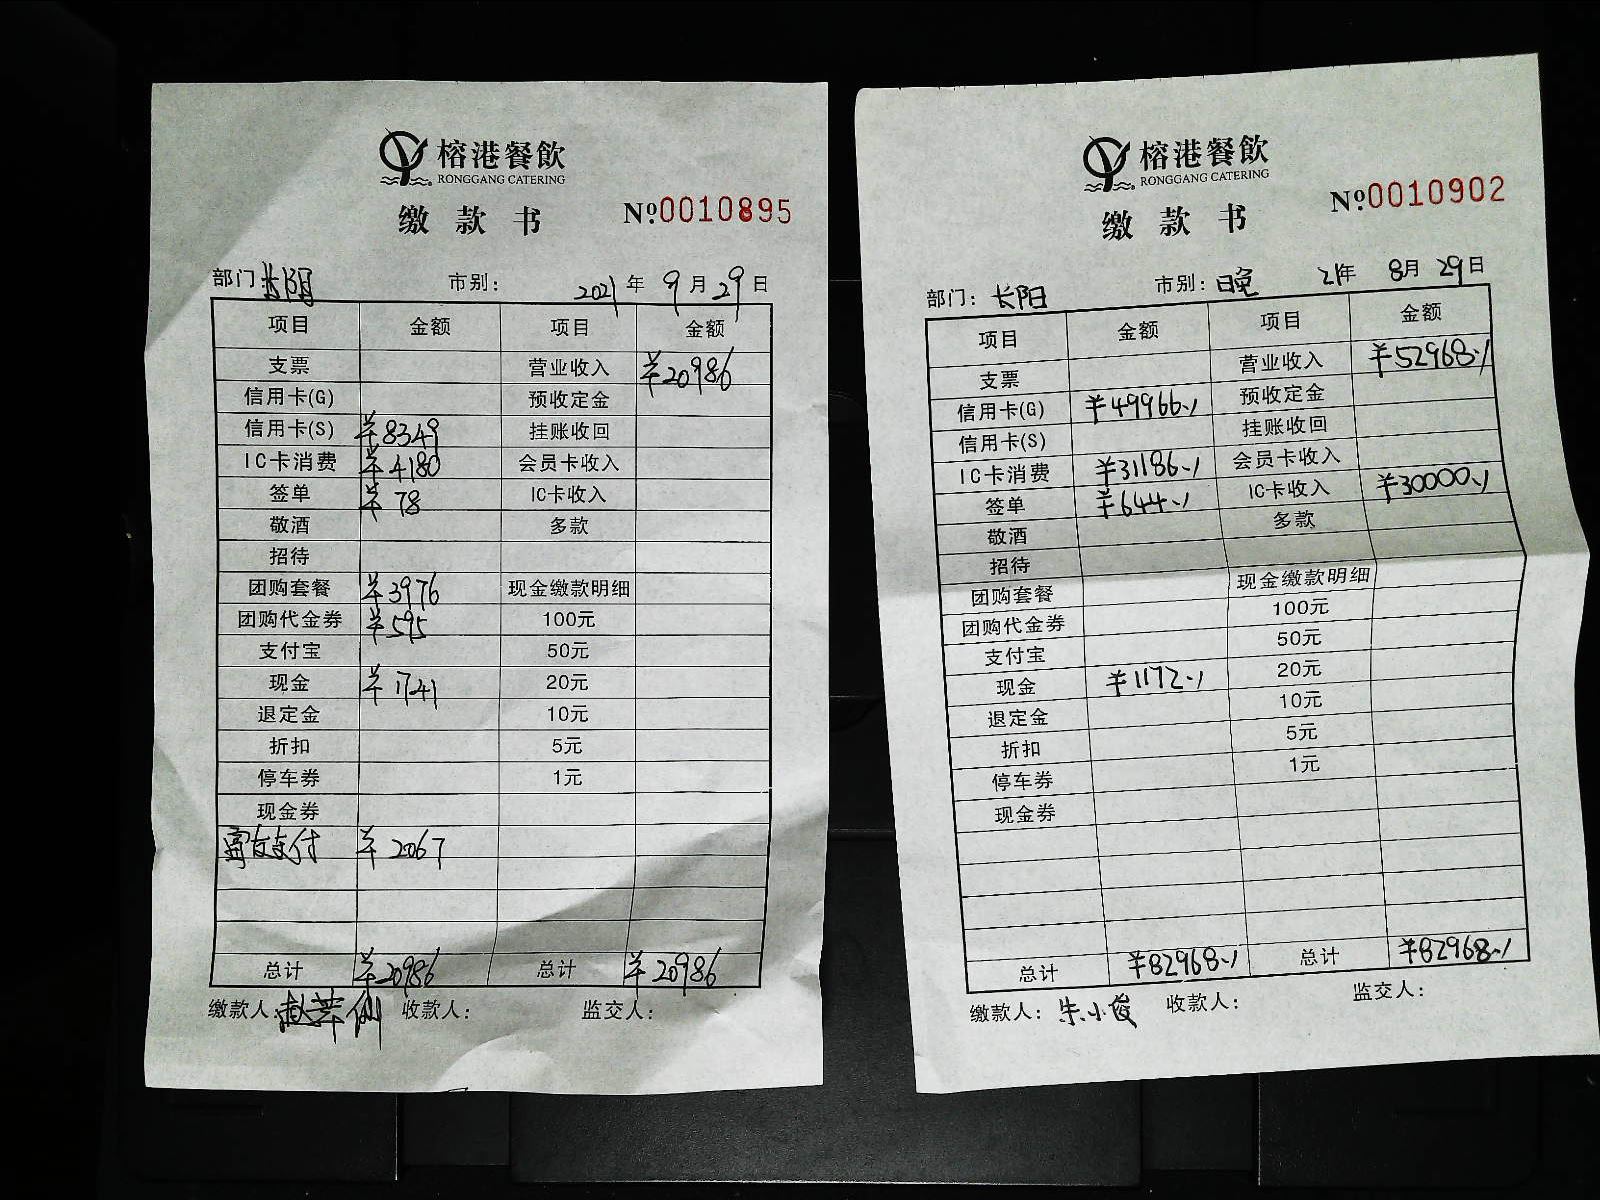 榕港餐飲
RONGGANG CATERING
缴款书 №0010895
部门 长阳 市别： 2021年 9月29日
项目 金额 项目 金额
支票 营业收入 ¥20986
信用卡(G) 预收定金
信用卡(S) ¥8349 挂账收回
IC卡消费 ¥4180 会员卡收入
签单 ¥78 IC卡收入
敬酒 多款
招待
团购套餐 ¥3976 现金缴款明细
团购代金券 ¥595 100元
支付宝 50元
现金 ¥1741 20元
退定金 10元
折扣 5元
停车券 1元
现金券
支付 ¥2067
总计 ¥20986 总计 ¥20986
缴款人： 收款人： 监交人：
榕港餐飲
RONGGANG CATERING
缴款书 №0010902
部门：长阳 市别：晚 21年 8月29日
项目 金额 项目 金额
支票 营业收入 ¥52968.√
信用卡(G) ¥49966.√ 预收定金
信用卡(S) 挂账收回
IC卡消费 ¥31186.√ 会员卡收入
签单 ¥644.√ IC卡收入 ¥30000.√
敬酒 多款
招待
团购套餐 现金缴款明细
团购代金券 100元
支付宝 50元
现金 ¥1172.√ 20元
退定金 10元
折扣 5元
停车券 1元
现金券
总计 ¥82968.√ 总计 ¥82968.√
缴款人：朱小俊 收款人： 监交人：